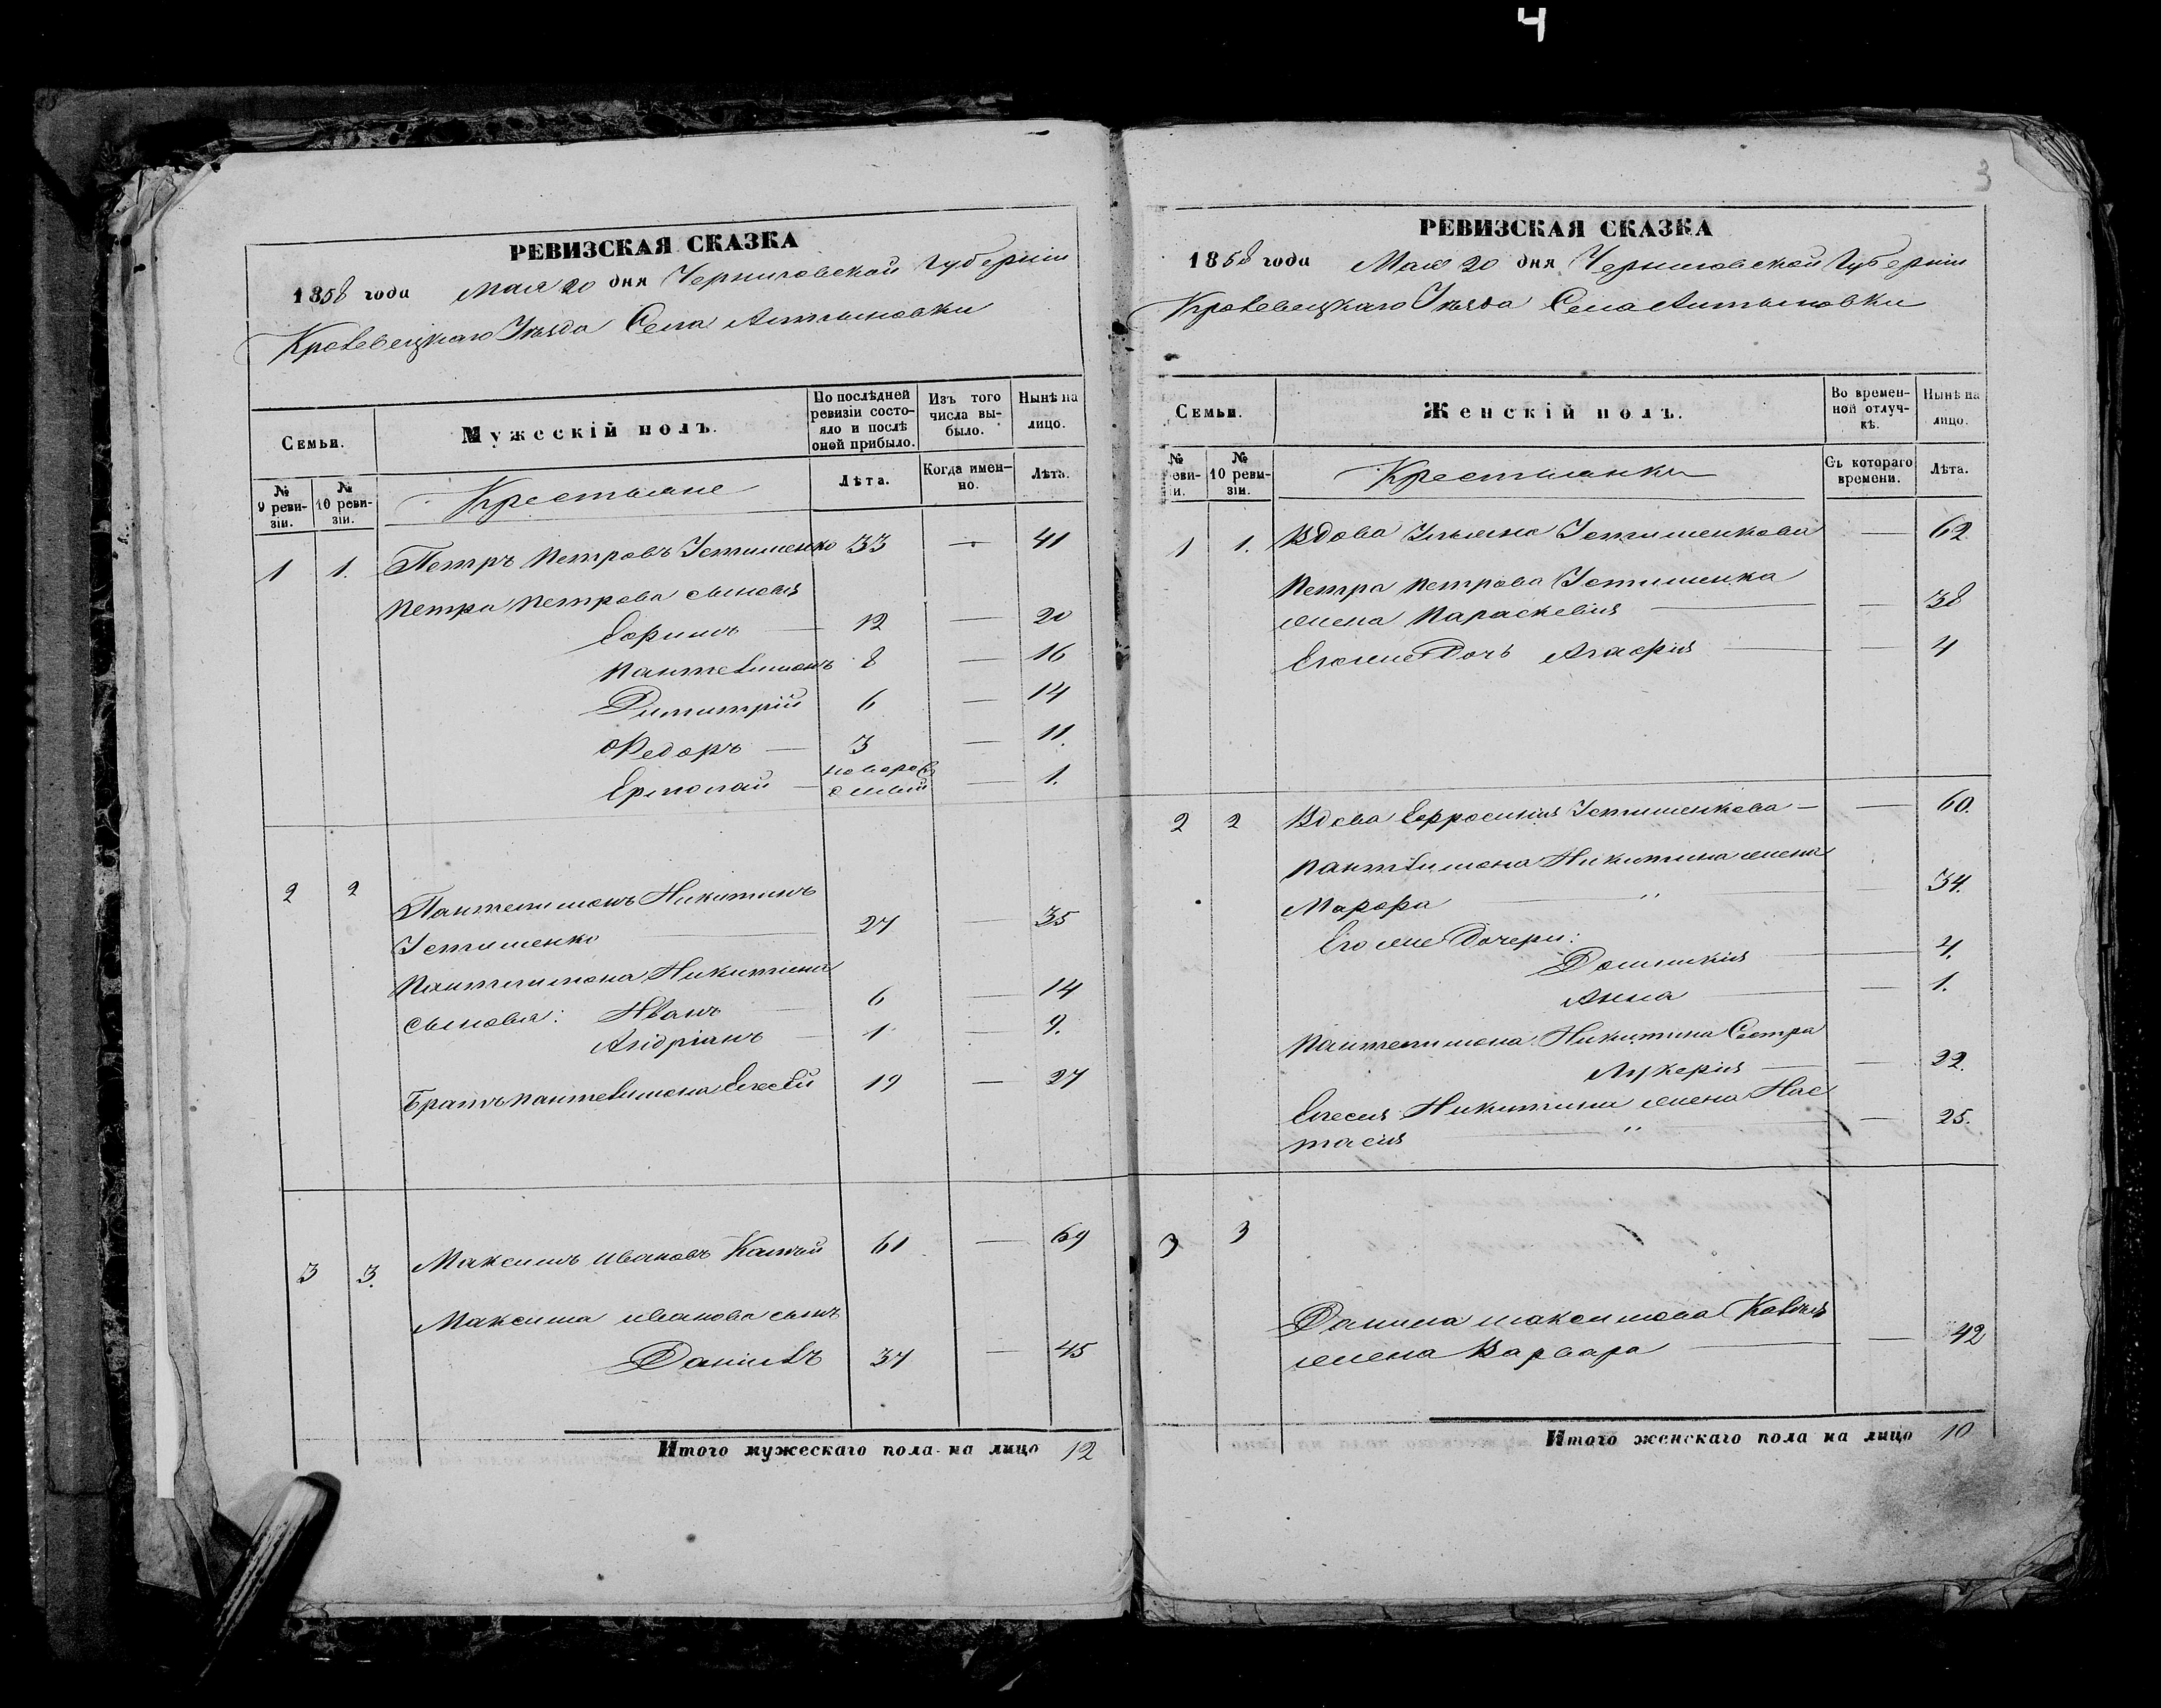 4
3
РЕВИЗСКАЯ СКАЗКА
1858 года Мая 20 дня Черниговской Губерніи
Кролевецкаго Уѣзда Села Алтыновки
Семьи.
Мужескій полъ.
По послѣдней ревизіи состояло и послѣ оней прибыло.
Изъ того числа выбыло.
Нынѣ на лицо.
№ 9 ревизіи.
№ 10 ревизіи.
Крестьяне
Лѣта.
Когда именно.
Лѣта.
1 1. Петръ Петровъ Устименко 33 — 41
Петра Петрова сыновья
Ефимъ — 12 — 20
Пантелимонъ 8 — 16
Димитрій 6 — 14
Федоръ — 3 — 11.
Ермолай — новорож
денный — 1.
2 2 Пантелимонъ Никитинъ
Устименко 27 — 35
Пантелимона Никитина
сыновья: Иванъ — 6 — 14
Андріанъ — 1 — 9.
Братъ Пантелимона Елесей 19 — 27
3 3. Максимъ Ивановъ 61 — 69
Максима Иванова сынъ
Даніилъ 37 — 45
Итого мужескаго пола на лицо 12
РЕВИЗСКАЯ СКАЗКА
1858 года Мая 20 дня Черниговской Губерніи
Кролевецкаго Уѣзда Села Алтыновки
Семьи.
Женскій полъ.
Во временной отлучкѣ.
Нынѣ на лицо.
№ еви-и.
№ 10 ревизіи.
Крестьянки
Съ котораго времени.
Лѣта.
1 1. Вдова Ульяна Устименкова — 62
Петра Петрова Устименка
жена Параскевія — 38
Егоже Дочь Агафія — 4
2 2 Вдова Ефросинія Устименкова — — 60.
Пантелимона Никитина жена
Марфа — " — 34.
Егоже Дочери:
Домникія — 4.
Анна — — 1.
Пантелимона Никитина Сестра
Лукерія — — 22.
Елесея Никитина жена Нас
тасія — " — 25.
3 3
Данила Максимова
жена Варвара — — 42
Итого женскаго пола на лицо 10